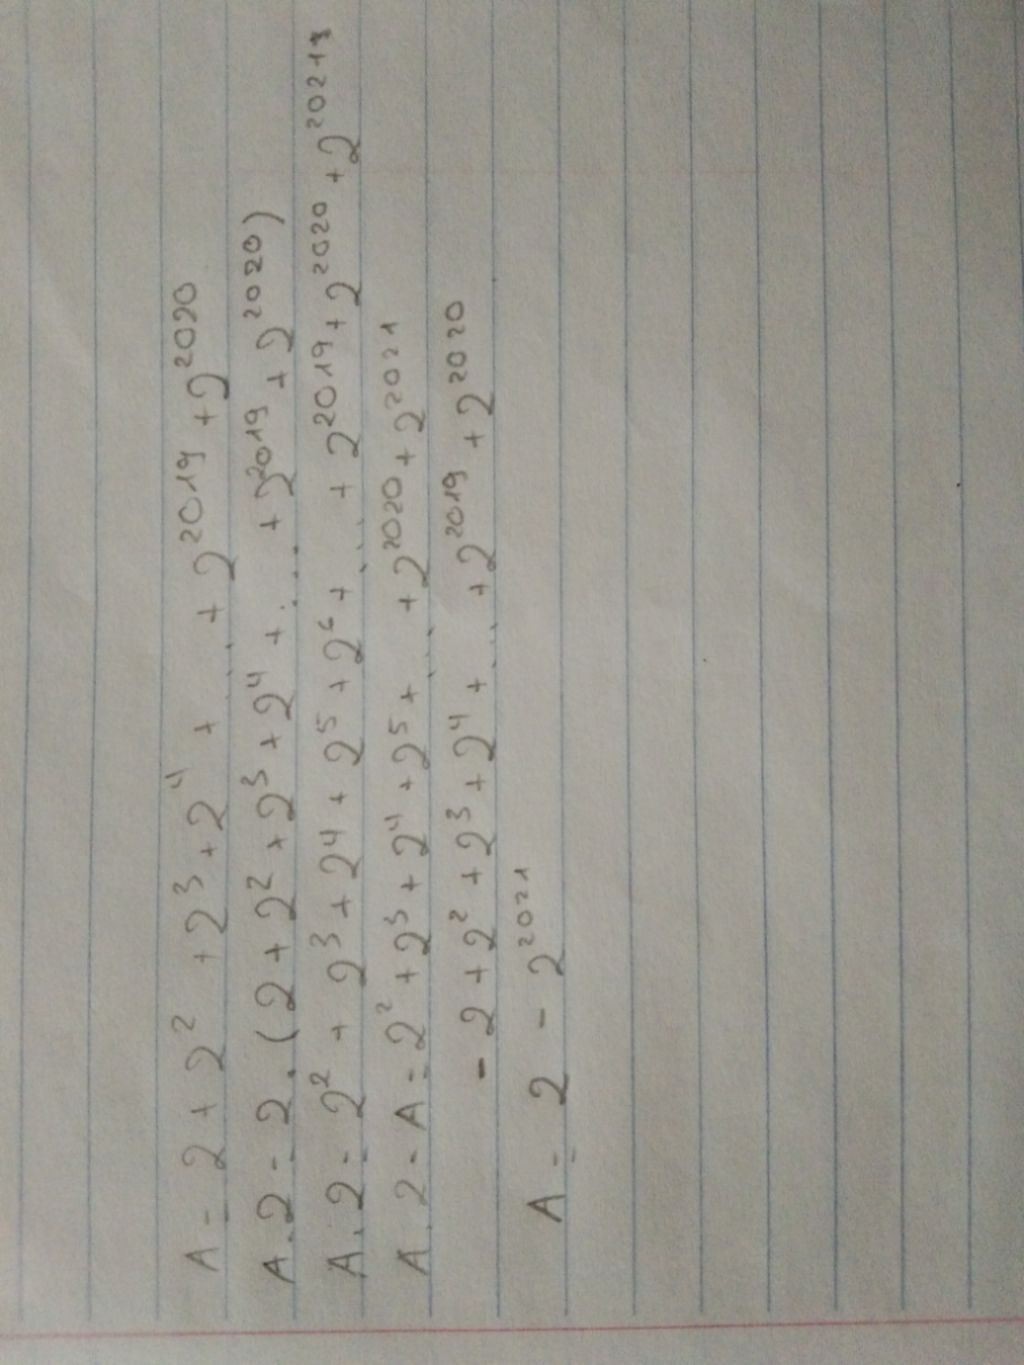 A = 2 + 2² + 2³ + 2⁴ + ... + 2²⁰¹⁹ + 2²⁰²⁰
A . 2 = 2 . ( 2 + 2² + 2³ + 2⁴ + ... + 2²⁰¹⁹ + 2²⁰²⁰ )
A . 2 = 2² + 2³ + 2⁴ + 2⁵ + 2⁶ + ... + 2²⁰¹⁹ + 2²⁰²⁰ + 2²⁰²¹
A . 2 - A = 2² + 2³ + 2⁴ + 2⁵ + ... + 2²⁰²⁰ + 2²⁰²¹
- 2 + 2² + 2³ + 2⁴ + ... + 2²⁰¹⁹ + 2²⁰²⁰
A = 2 - 2²⁰²¹